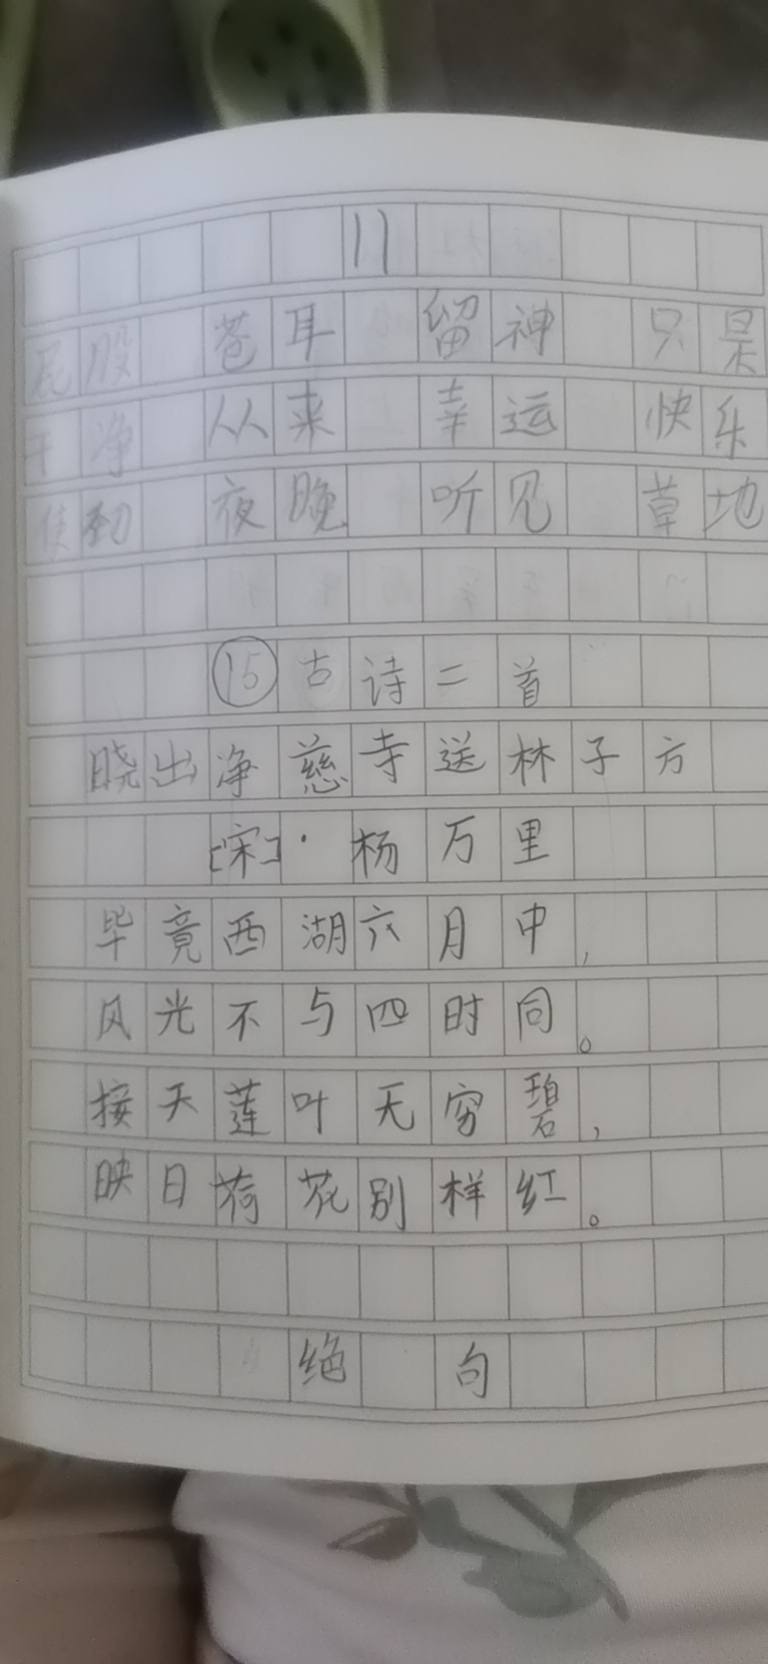 11
屁股 苍耳 留神 只是
干净 从来 幸运 快乐
使劲 夜晚 听见 草地
⑮古诗二首
晓出净慈寺送林子方
[宋]·杨万里
毕竟西湖六月中,
风光不与四时同。
接天莲叶无穷碧,
映日荷花别样红。
绝 句